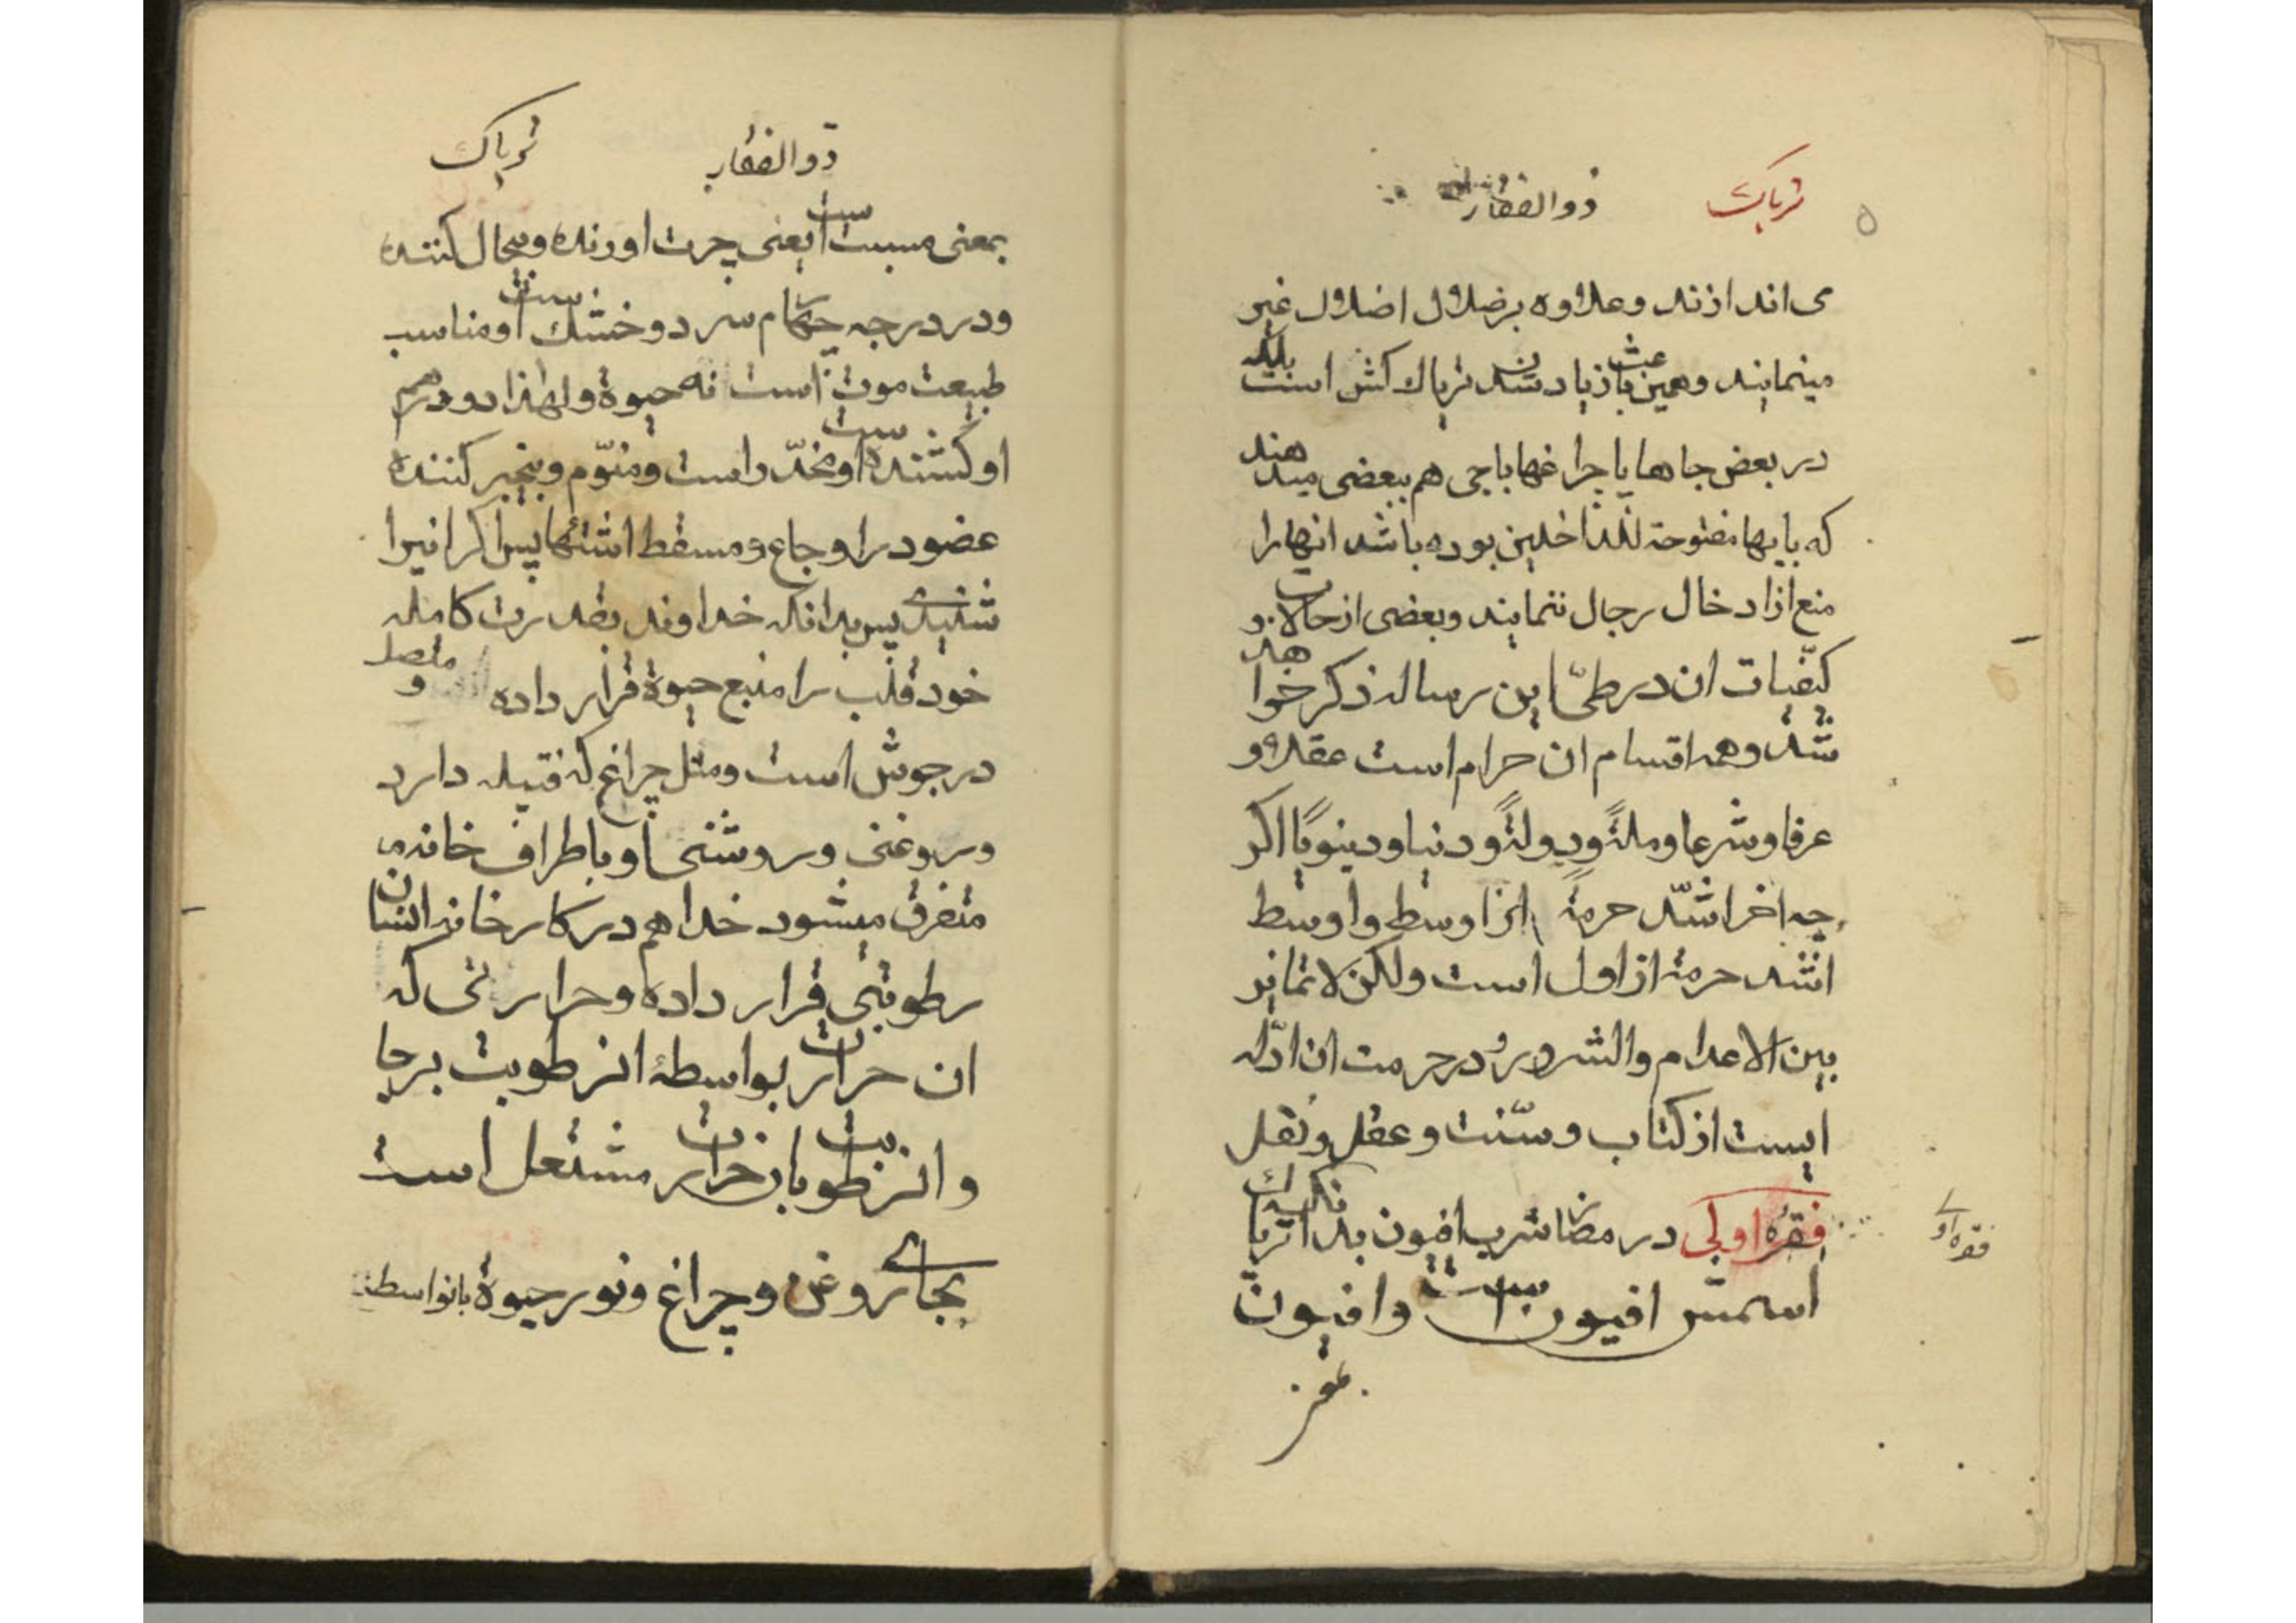 ۵ تریاک ذوالفقار
می اندازند و علاوه بر ضلال اضلال غیر
مینمایند و همین باعث زیاد شدن تریاك کش است بلکه
در بعض جاها یا چراغها باجی هم ببعضی میدهند
که بابها مفتوحة للداخلین بوده باشد انها را
منع از ادخال رجال ننمایند و بعضی از حالات و
کیفیات ان در طیّ این رساله ذکر خواهد
شد و همه اقسام ان حرام است عقلا و
عرفا و شرعا و ملةً و دولةً و دنیا و دینویًا اکر
چه اخر اشدّ حرمة از اوسط و اوسط
اشد حرمة از اول است ولکن لا تمایز
بین الاعدام والشرور و در حرمت ان ادله
ایست از کتاب و سنّت و عقل و نقل
فقره اولی در مضار شرب افیون بدانکه تریاك
اسمش افیون است و افیون
فقره اولی
ذوالفقار تریاک
بمعنی مسبت است یعنی چرت اورنده و بیحال کننده
و در درجه چهارم سرد و خشك است و مناسب
طبیعت موت است نه حیوة و لهذا دو درهم
او کشنده است و مخدّر است و منوّم و بیخبر کننده
عضو در اوجاع و مسقط اشتها پس اکر انیرا
شنیدی پس بدانکه خداوند بقدرت کامله
خود قلب را منبع حیوة قرار داده و متصل
در جوش است و مثل چراغ که فتیله دارد
و روغنی و روشنی او باطراف خانه
متفرق میشود خدا هم در کارخانه انسان
رطوبتی قرار داده و حرارتی که
ان حرارت بواسطهٔ ان رطوبت برجا
و ان رطوبت بان حرارت مشتعل است
بجای روغن و چراغ و نور حیوة بانواسطه